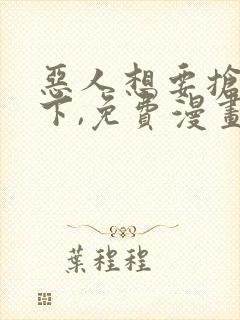 惡人想要搶
下,免費漫畫
葉程程